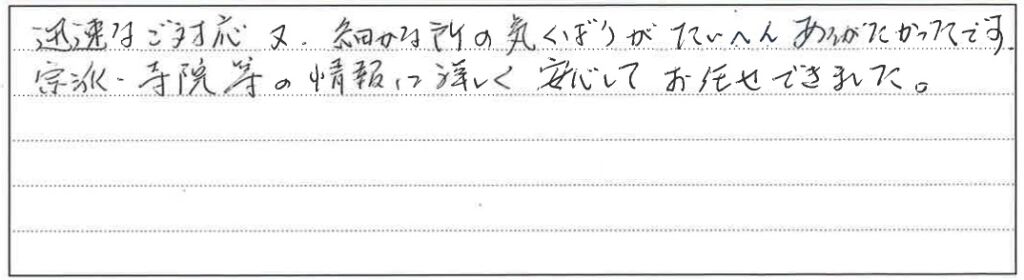 迅速なご対応 又、細かな所の気くばりがたいへんありがたかったです。
宗派・寺院等の情報に詳しく安心してお任せできました。